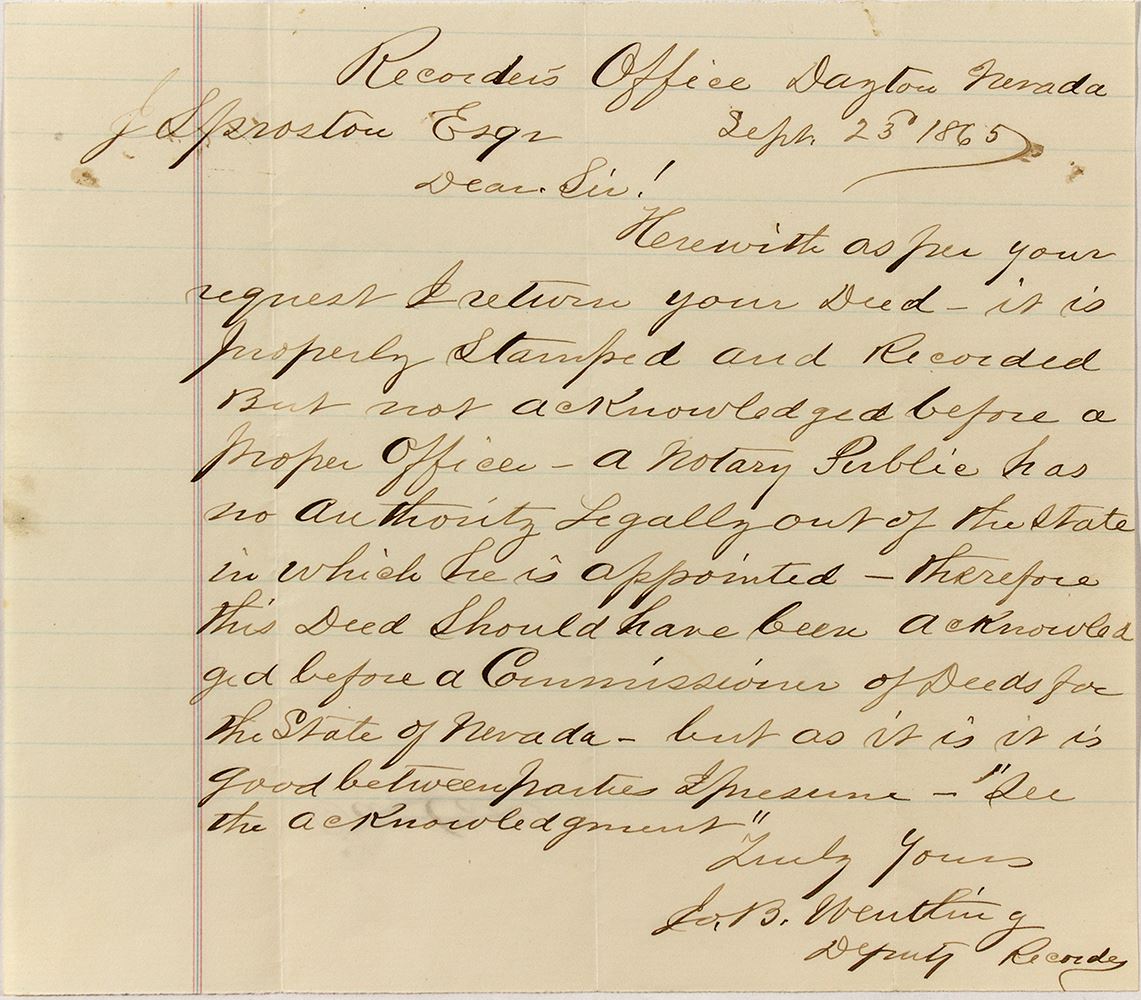 Recorder's Office Dayton Nevada
J Sproston Esqr Sept. 23d 1865
Dear Sir!
Herewith as per your
request I return your Deed - it is
properly Stamped and Recorded
But not acknowledged before a
proper Officer - a Notary Public has
no authority Legally out of the State
in which he is appointed - therefore
this Deed Should have been acknowled
ged before a Commissioner of Deeds for
the State of Nevada - but as it is it is
good between parties I presume - "See
the acknowledgment"
Truly Yours
Jo. B. Wentling
Deputy Recorder